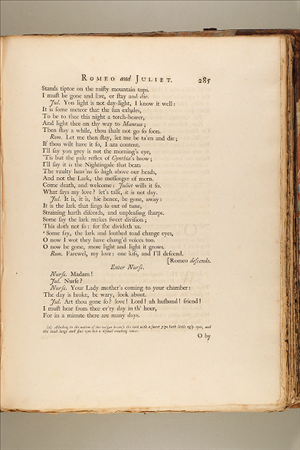 ROMEO and JULIET. 285
Stands tiptoe on the misty mountain tops.
I must be gone and live, or stay and die.
Jul. Yon light is not day-light, I know it well:
It is some meteor that the sun exhales,
To be to thee this night a torch-bearer,
And light thee on thy way to Mantua;
Then stay a while, thou shalt not go so soon.
Rom. Let me then stay, let me be ta'en and die;
If thou wilt have it so, I am content.
I'll say yon grey is not the morning's eye,
'Tis but the pale reflex of Cynthia's brow;
I'll say it is the Nightingale that beats
The vaulty heav'ns so high above our heads,
And not the Lark, the messenger of morn.
Come death, and welcome: Juliet wills it so.
What says my love? let's talk, it is not day.
Jul. It is, it is, hie hence, be gone, away:
It is the lark that sings so out of tune,
Straining harsh discords, and unpleasing sharps.
Some say the lark makes sweet division;
This doth not so: for she divideth us.
Some say, the lark and loathed toad change eyes,
O now I wot they have chang'd voices too.
O now be gone, more light and light it grows.
Rom. Farewel, my love: one kiss, and I'll descend.
[Romeo descends.
Enter Nurse.
Nurse. Madam!
Jul. Nurse?
Nurse. Your Lady mother's coming to your chamber:
The day is broke, be wary, look about.
Jul. Art thou gone so? love! Lord! ah husband! friend!
I must hear from thee ev'ry day in th' hour,
For in a minute there are many days.
O by